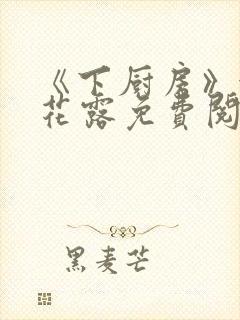 《下厨房》
花露免費閱
黑麦芒